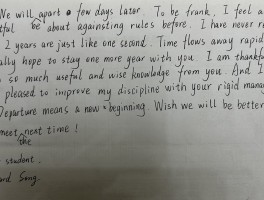 We will apart a few days later. To be frank, I feel a
tful be about againsting rules before. I have never r
2 years are just like one second. Time flows away rapid
ally hope to stay one more year with you. I am thankf
so much useful and wise knowledge from you. And I
pleased to improve my discipline with your rigid manag
Departure means a new beginning. Wish we will be better
meet next time!
the
student.
ard Song.